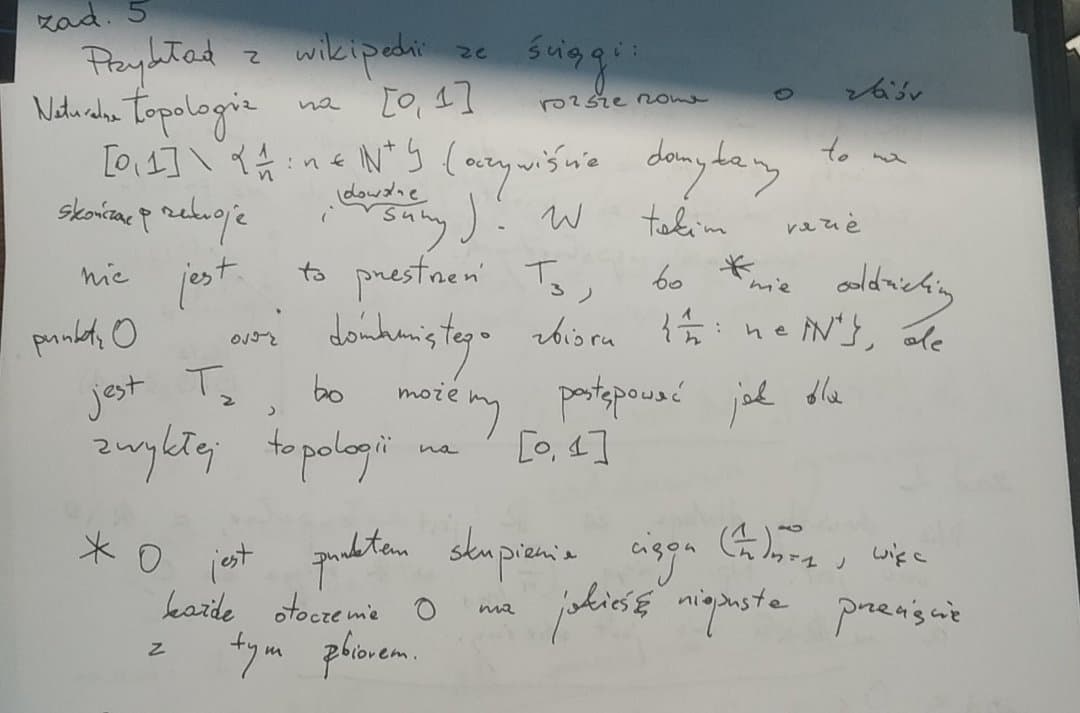 zad. 5
Przykład z wikipedii ze ściągi:
Naturalna topologia na [0,1] rozszerzona o zbiór
[0,1] \ {1/n : n ∈ ℕ⁺} (oczywiście domykamy to na
skończone przekroje i dowolne sumy). W takim razie
nie jest to przestrzeń T₃, bo * nie oddzielimy
punktu 0 oraz domkniętego zbioru {1/n : n ∈ ℕ⁺}, ale
jest T₂, bo możemy postępować jak dla
zwykłej topologii na [0,1]
* 0 jest punktem skupienia ciągu (1/n)_{n=1}^∞, więc
każde otoczenie 0 ma jakieś niepuste przecięcie
z tym zbiorem.